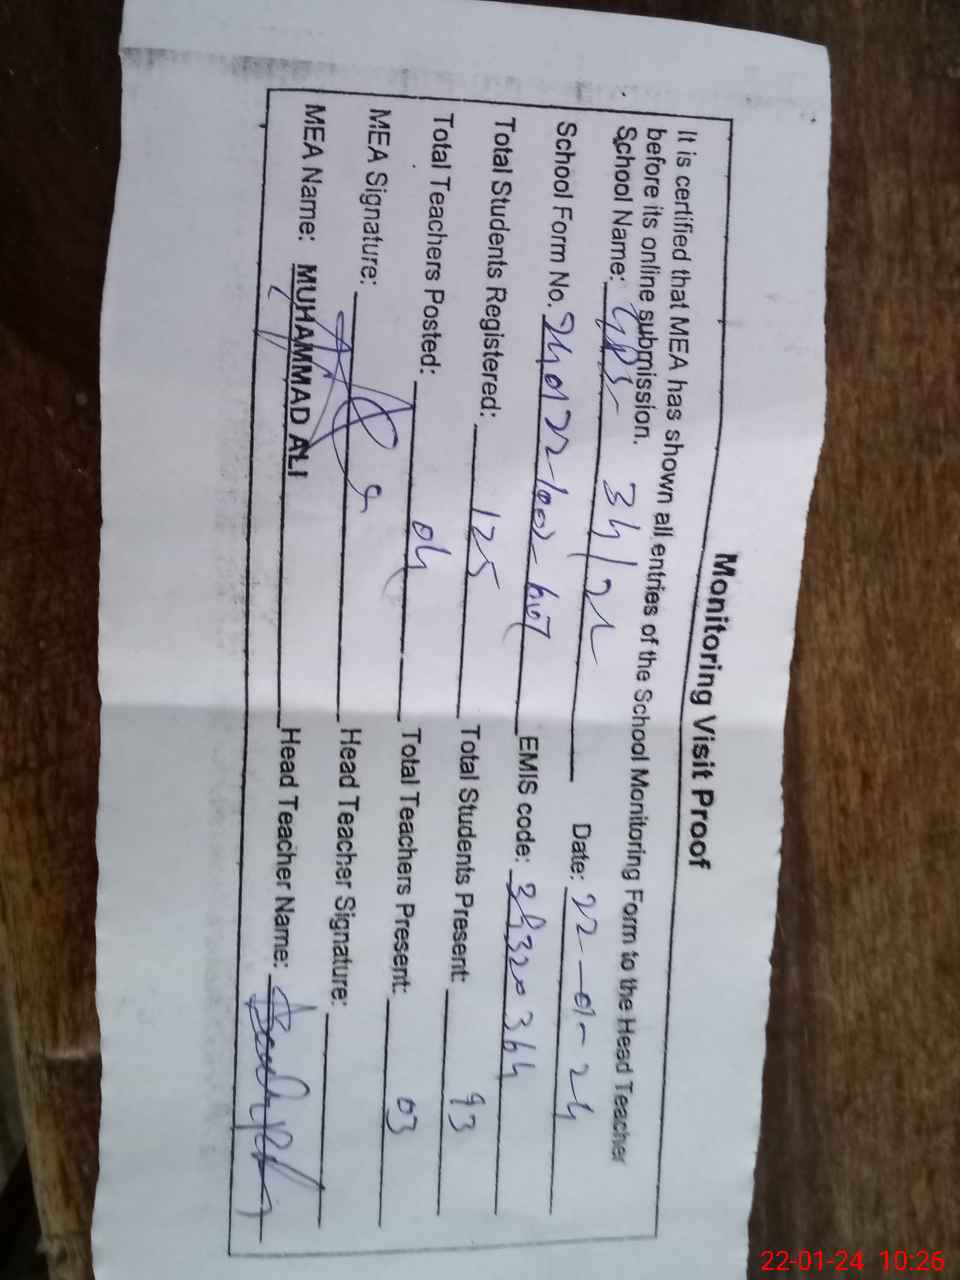 Monitoring Visit Proof
It is certified that MEA has shown all entries of the School Monitoring Form to the Head Teacher
before its online submission.
School Name: GPS 34/2L Date: 22-01-24
School Form No. 240122-1002-607 EMIS code: 34320364
Total Students Registered: 125 Total Students Present: 93
Total Teachers Posted: 04 Total Teachers Present: 03
MEA Signature: Head Teacher Signature:
MEA Name: MUHAMMAD ALI Head Teacher Name:
22-01-24 10:26